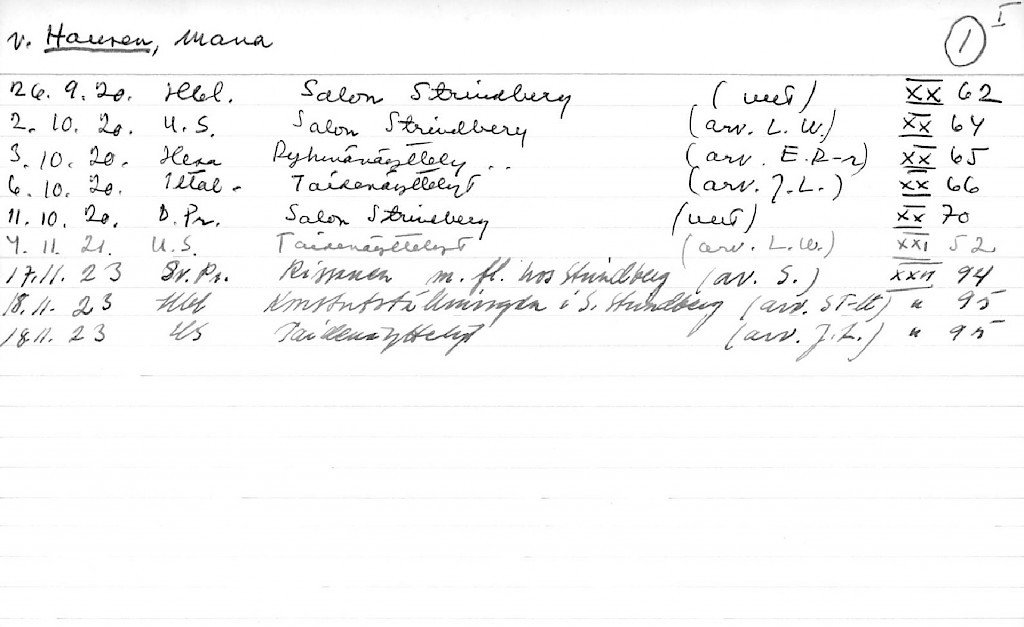 v. Hausen, Maria ① I
26. 9. 20. Hbl. Salon Strindberg (uut) XX 62
2. 10. 20. U.S. Salon Strindberg (arv. L. W.) XX 64
3. 10. 20. Ryhmänäyttely (arv. E.R-r) XX 65
6. 10. 20. Iltal- Taidenäyttelyt (arv. J.L.) XX 66
11. 10. 20. D. Pr. Salon Strindberg (uut) XX 70
7. 11. 21. U.S. Taidenäyttelyt (arv. L.W.) XXI 52
17.11. 23 Sv.Pr. Rissanen m. fl. hos Strindberg (av. S.) 94
18.11. 23 Hbl Konstutställningen i S. Strindberg (arv.) " 95
18.11. 23 US Taidenäyttelyt (arv. J.L.) " 95